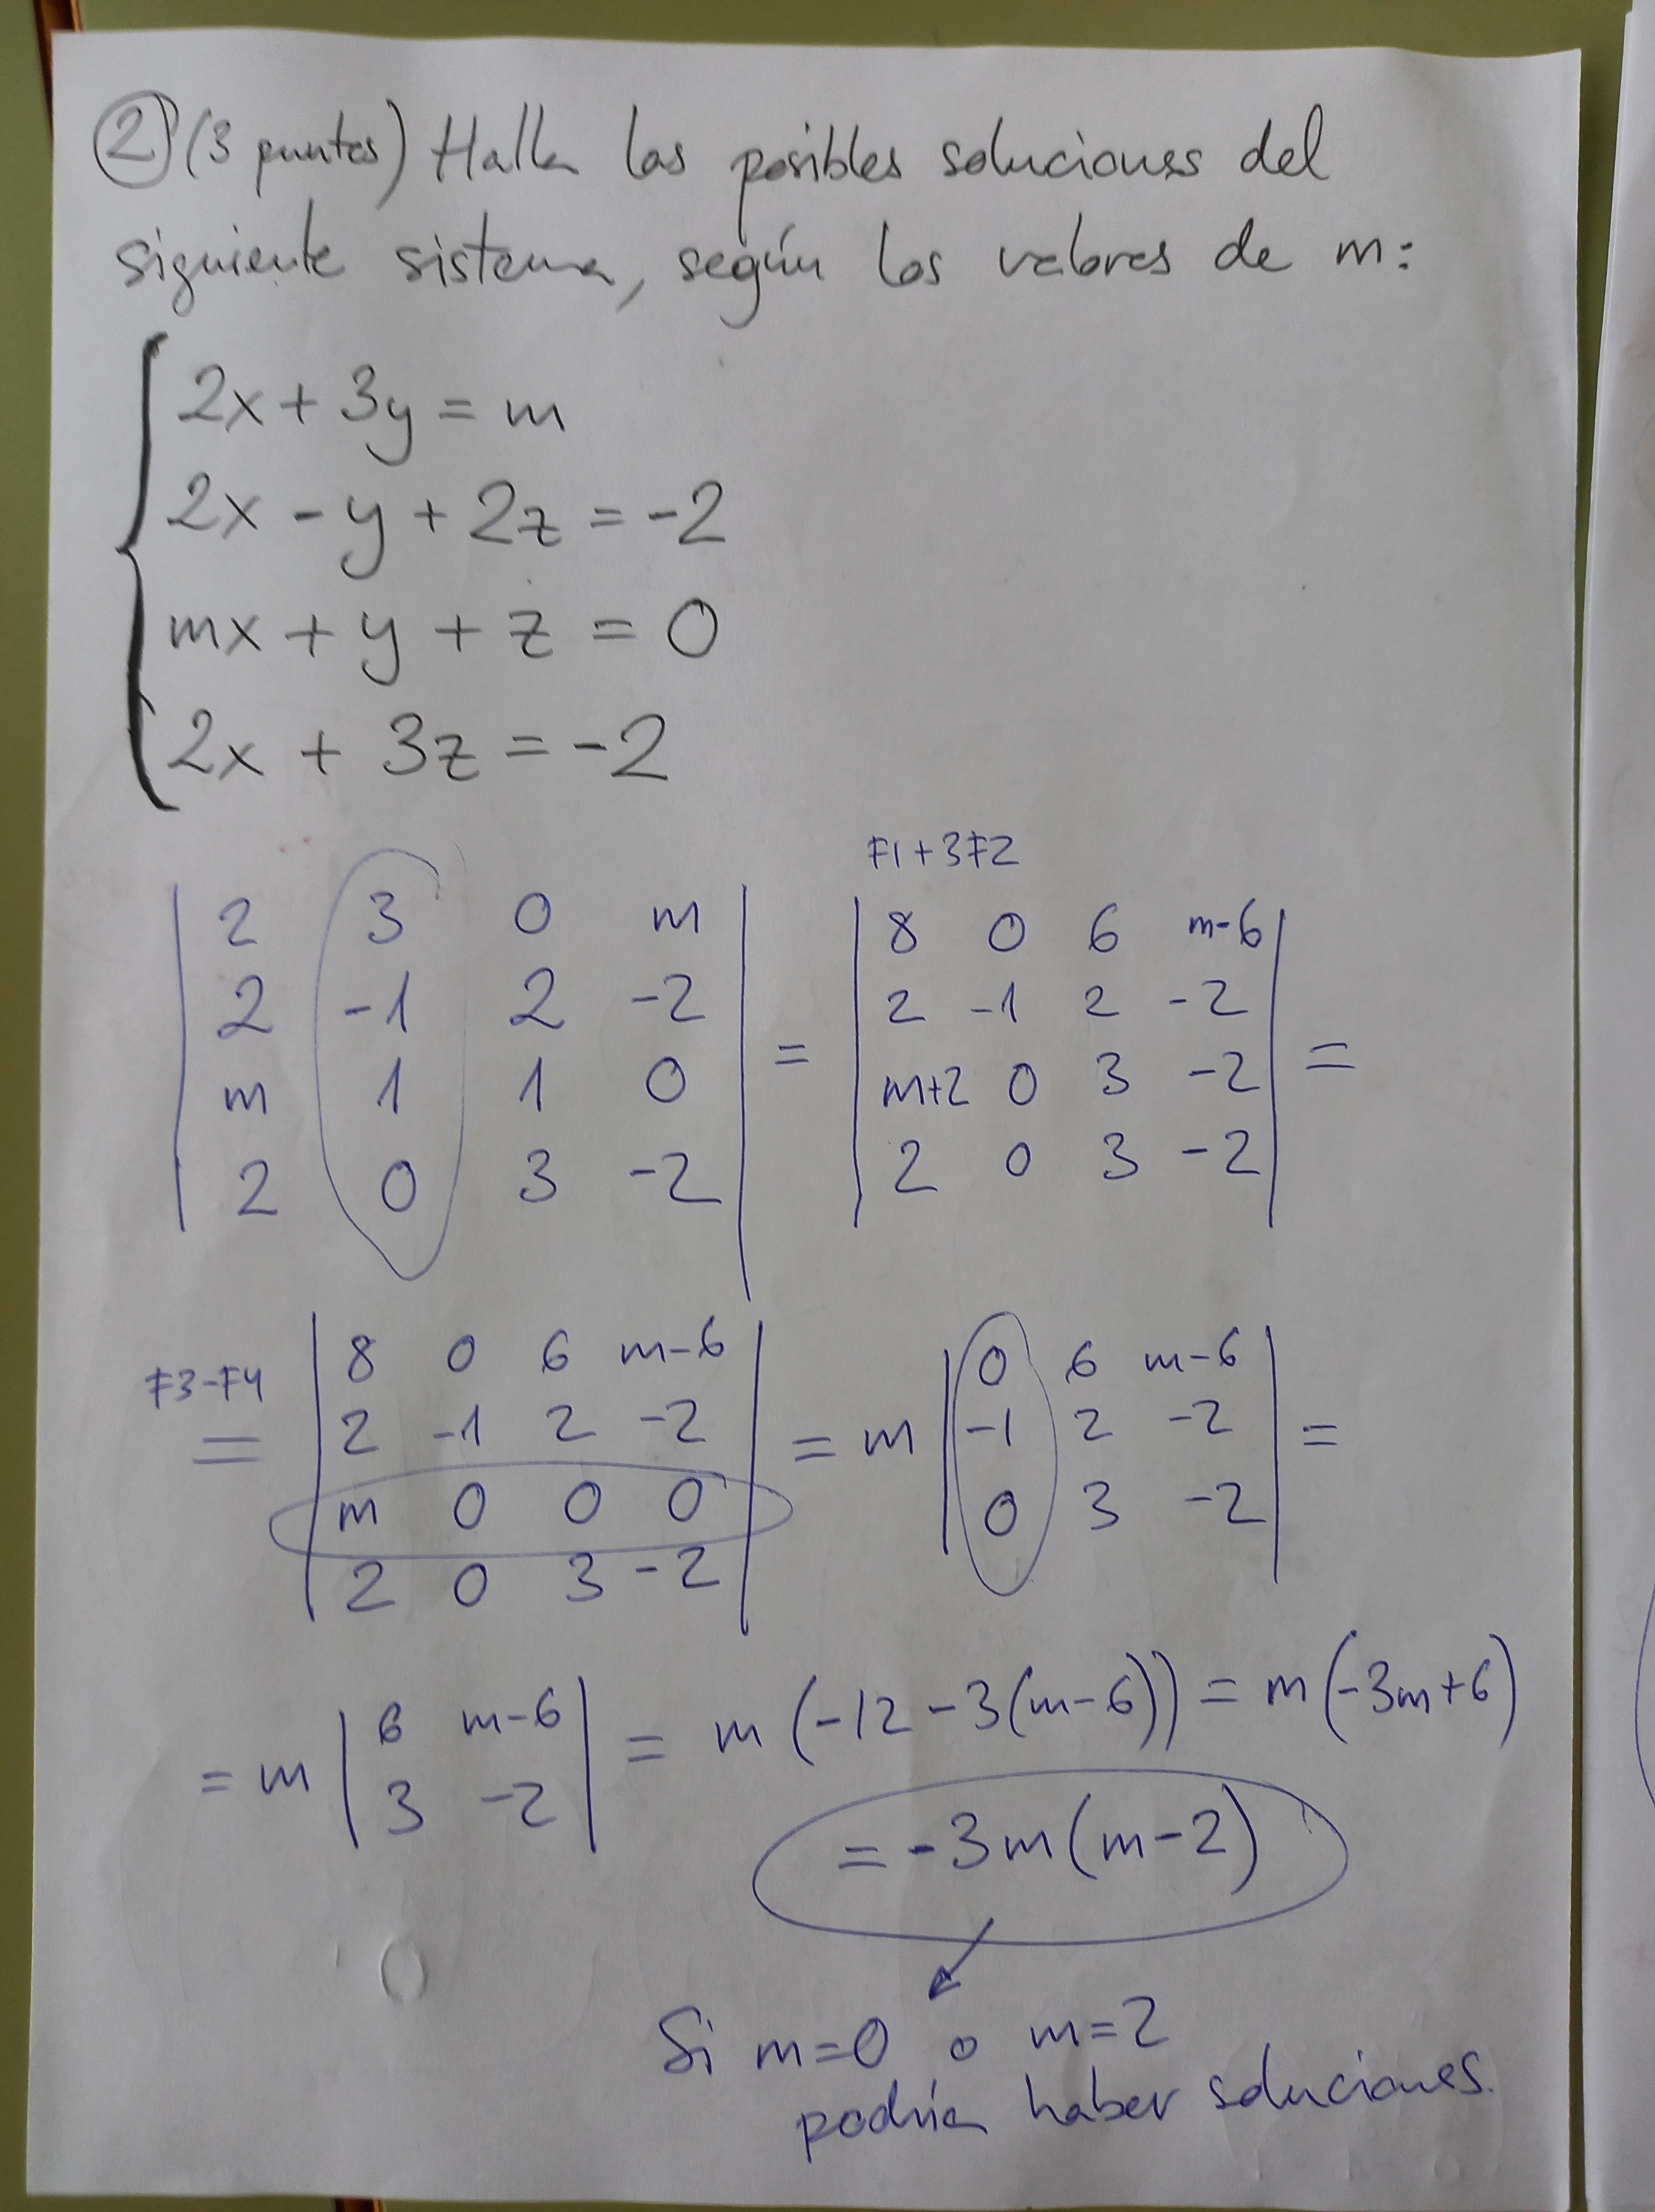 ② (3 puntos) Halla las posibles soluciones del
siguiente sistema, según los valores de m:
2x + 3y = m
2x - y + 2z = -2
mx + y + z = 0
2x + 3z = -2
F1+3F2
| 2 3 0 m | = | 8 0 6 m-6 | =
| 2 -1 2 -2 | | 2 -1 2 -2 |
| m 1 1 0 | | m+2 0 3 -2 |
| 2 0 3 -2 | | 2 0 3 -2 |
F3-F4
= | 8 0 6 m-6 | = m | 0 6 m-6 | =
| 2 -1 2 -2 | | -1 2 -2 |
| m 0 0 0 | | 0 3 -2 |
| 2 0 3 -2 |
= m | 6 m-6 | = m (-12 -3(m-6)) = m(-3m+6)
| 3 -2 |
= -3m(m-2)
Si m=0 o m=2
podría haber soluciones.